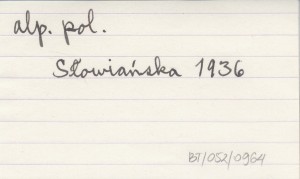 alp. pol.
Słowiańska 1936
BT/052/0964